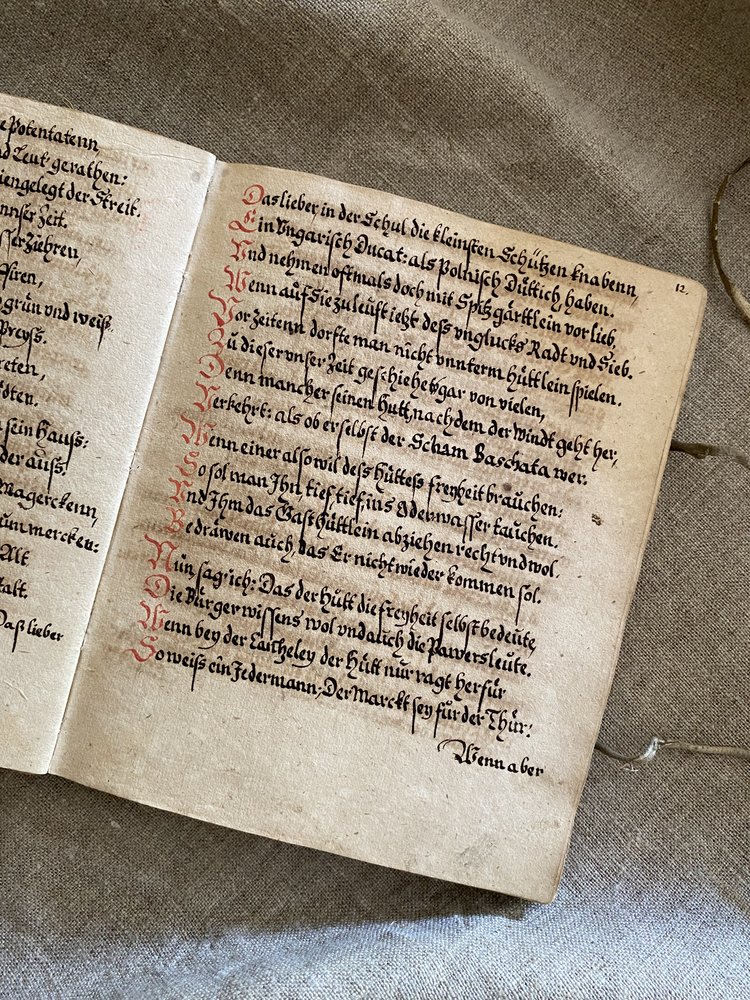 e Potentatenn
nd Leut gerathen:
iengelegt der Streit.
nnser Zeit.
sser ziehren,
siren,
grün vnd weiß.
Preyß.
reten,
dten.
sein Hauß:
der auß.
Magerckenn,
um mercken:
Alt
talt.
Daß lieber
12.
Das lieber, in der Schul die kleinsten Schützen knabenn,
Ein Vngarisch Ducat: als Polnisch Düttich haben.
Vnd nehmen oftmals doch mit Spitzgärttlein vor lieb,
Wenn auf Sie zu leuft ietzt deß vnglucks Radt vnd Sieb.
Vor Zeitenn dorfte man nicht vnnterm Hüttlein spielen.
Zu dieser vnser Zeit geschiehets gar von vielen,
Denn mancher seinen Hutt, nach dem der Windt geht her,
Verkehrt: als ob er selbst der Scham Baschata wer.
Wenn einer also wil deß Hüttes freyheit brauchen:
So sol man Ihn tief, tief, ins Oderwasser tauchen.
Vnd Ihm das Gasthüttlein abziehen recht vnd wol,
Bedräwen auch, das Er nicht wieder kommen sol.
Nun, sag ich: Das der Hutt die freyheit selbst bedeute,
Die Bürger wissens wol vnd auch die Pawersleute.
Wenn bey der Canzeley der Hutt nur ragt herfür
So weiß ein Jedermann, Der Marckt sey für der Thür:
Wenn aber